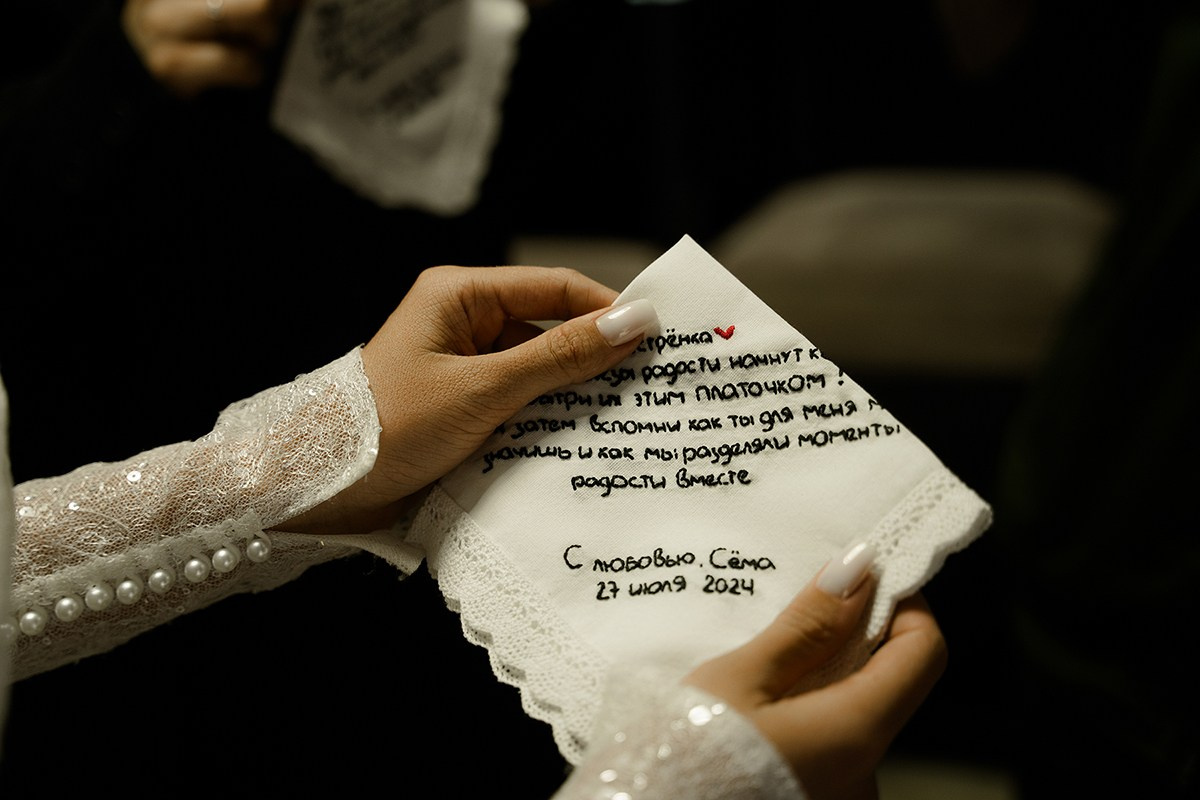 стрёнка
радости начнут
этим платочком !
затем вспомни как ты для меня
значишь и как мы разделяли моменты
радости вместе
С любовью, Сёма
27 июля 2024